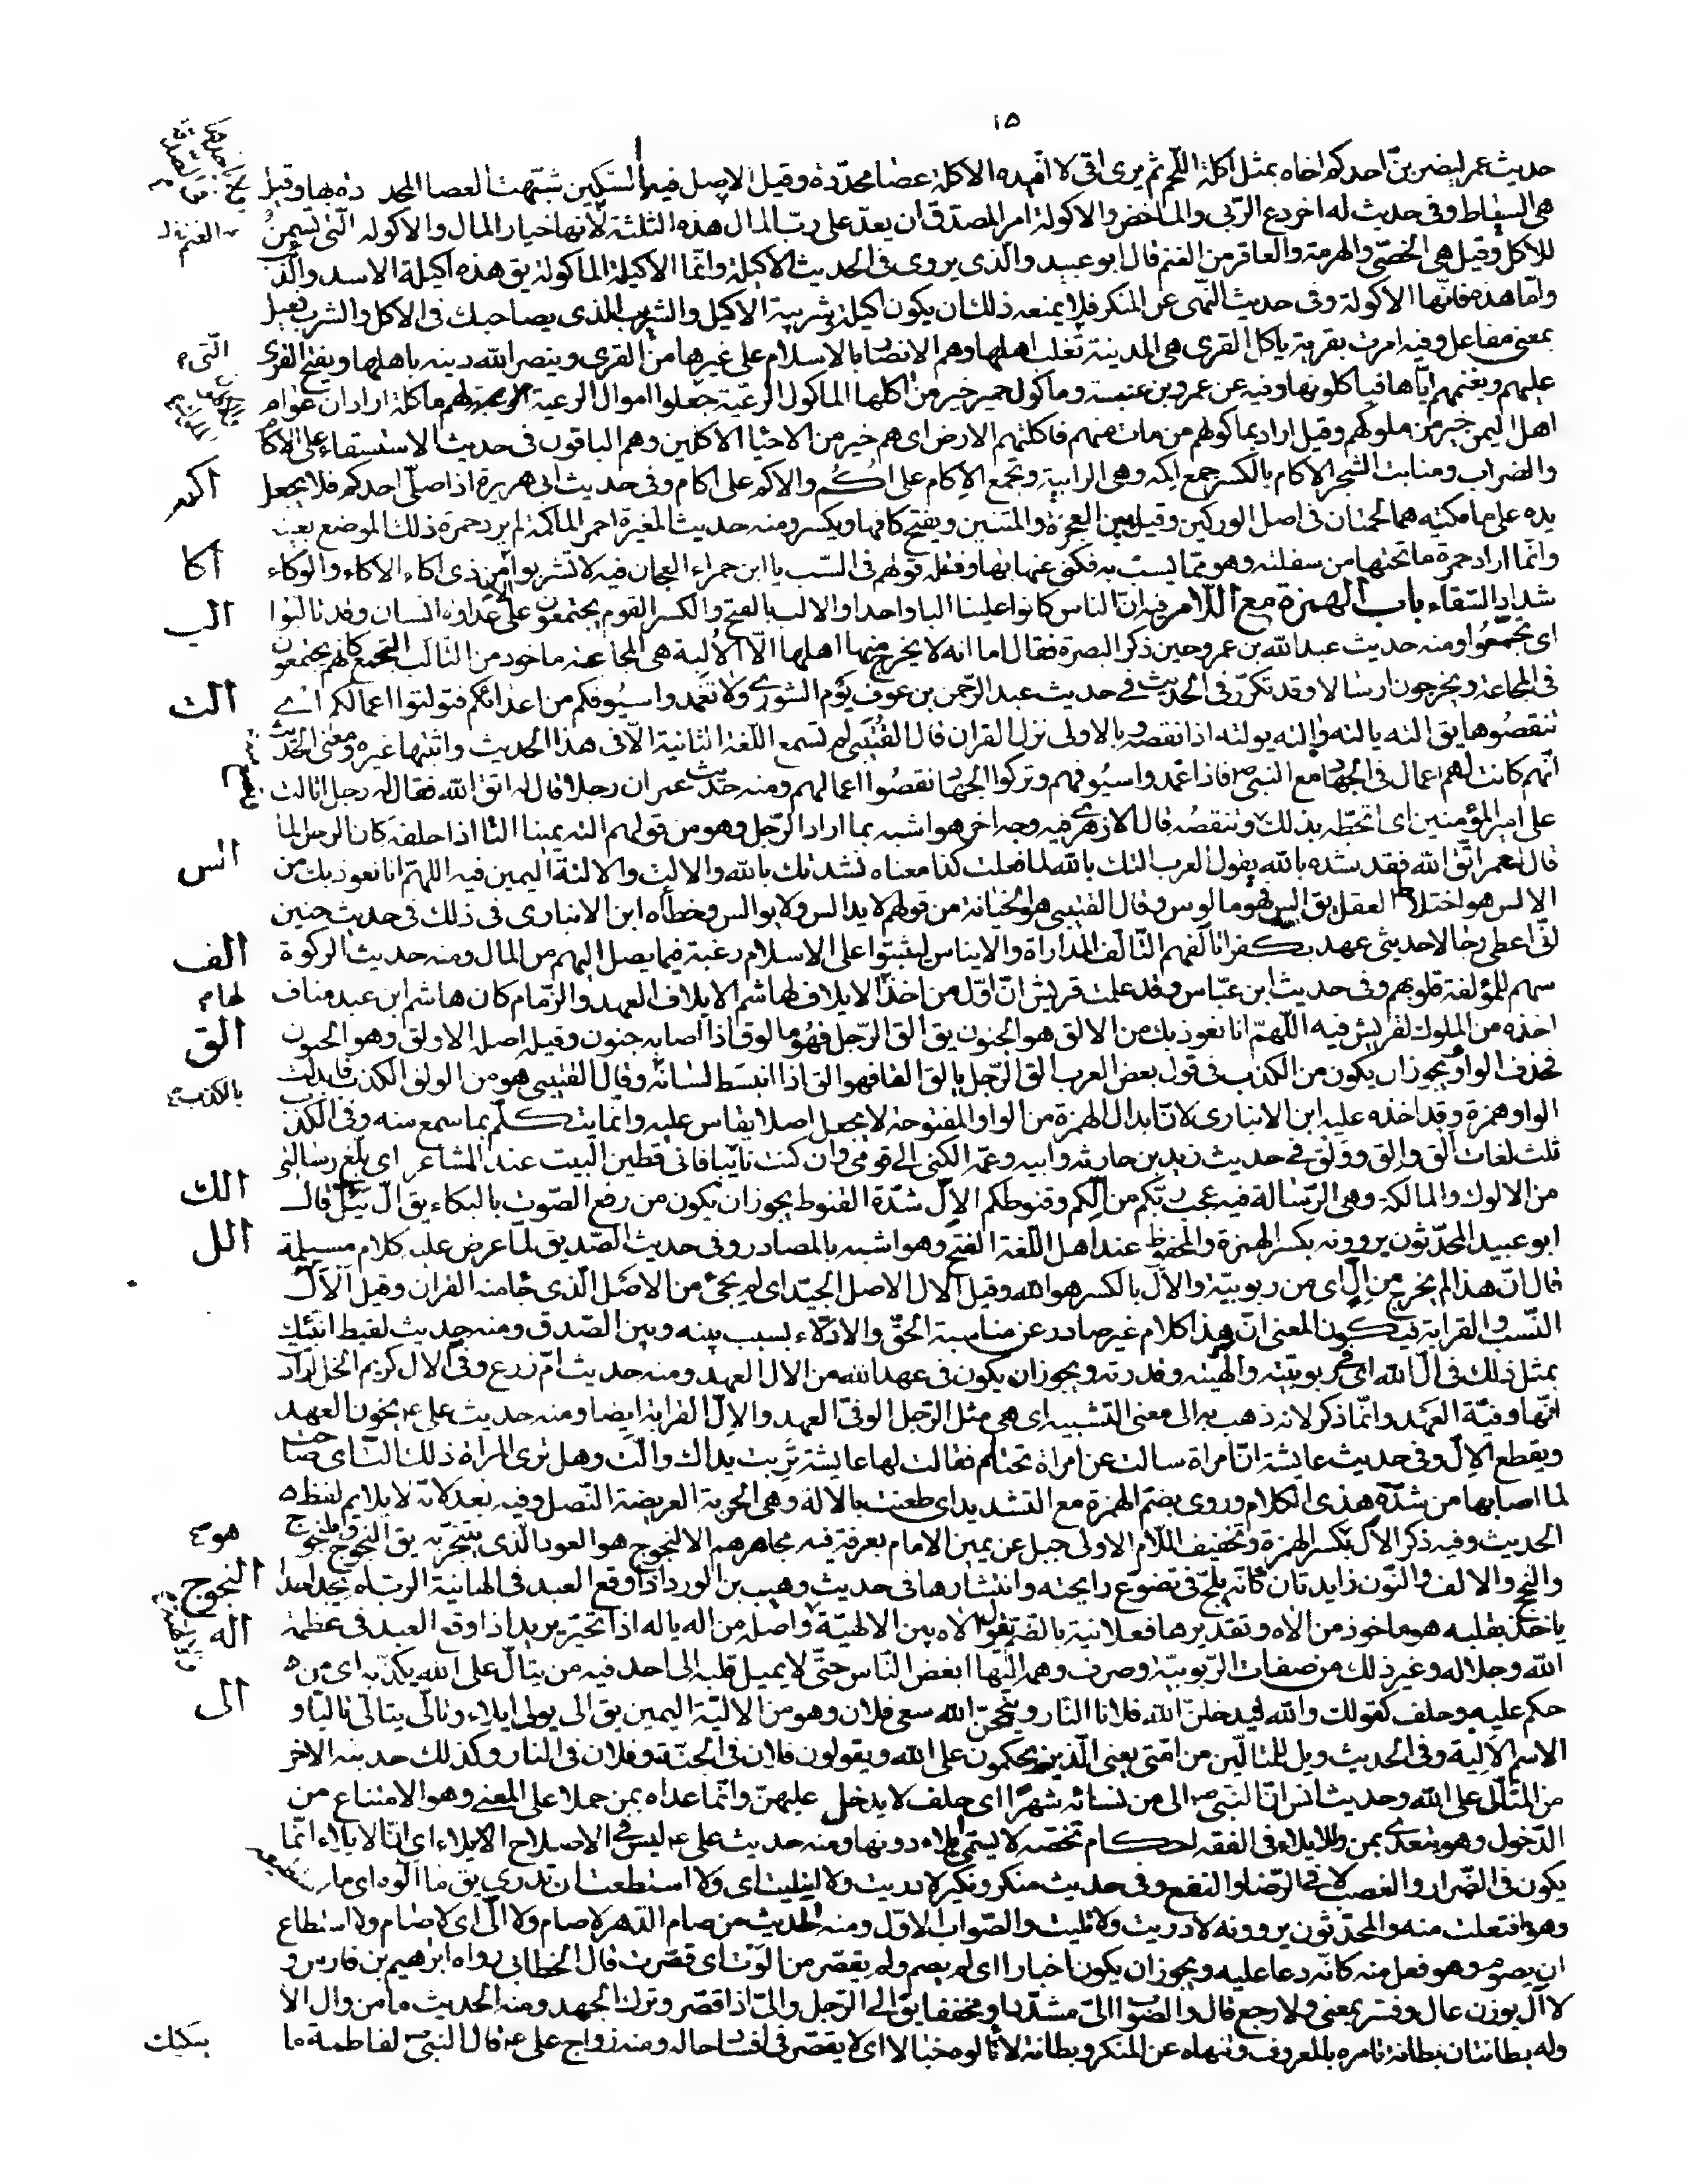 ١٥
حديث عمر ليضربنّ احدكم اخاه بمثل اكلة اللّحم ثم يرى انى لا اقيده الاكلة عصا محدّدة وقيل الاصل فيها السّكّين شبّهت العصا المحددة بها وقيل
هى السياط وفى حديث له اخر دع الرّبى والماخض والاكولة امر المصدّق ان يعدّ على ربّ المال هذه الثلثة لانها خيار المال والاكولة الّتى تسمن
للاكل وقيل هى الخصىّ والهرمة والعاقر من الغنم قال ابو عبيد والّذى يروى فى الحديث الاكيلة وانّما الاكيلة الماكولة يق هذه اكيلة الاسد والذّئب
وامّا هذه فانّها الاكولة وفى حديث النّهى عن المنكر فلا يمنعه ذلك ان يكون اكيله وشريبه الاكيل والشريب الذى يصاحبك فى الاكل والشرب فعيل
بمعنى مفاعل وفيه امرت بقرية ياكل القرى هى المدينة تغلب اهلها وهم الانصار بالاسلام على غيرها من القرى وينصر الله دينه باهلها ويفتح القرى
عليهم ويغنمهم ايّاها فياكلونها وفيه عن عمرو بن عنبسة وماكول حمير خير من اكلها الماكول الرّعيّة جعلوا اموال الرعية لهم ماكلة اراد ان عوام
اهل اليمن خير من ملوكهم وقيل اراد بماكولهم من مات منهم فاكلتهم الارض اى هم خير من الاحيا الاكلين وهم الباقون فى حديث الاستسقاء على الاكام
والضراب ومنابت الشجر الاكام بالكسر جمع اكمه وهى الرابية وتجمع الاكام على اُكُم والاكم على اكام وفى حديث ابى هريرة اذا صلّى احدكم فلا يجعل
يده على ماكمتيه هما لحمتان فى اصل الوركين وقيل بين العجز والمتنين ويفتح كافها ويكسر ومنه حديث المغيرة احمر الماكمة لم يرد حمرة ذلك الموضع بعينه
وانّما اراد حمرة ما تحتها من سفلته وهو ممّا يسبّ به فكنى عنها بها ومثله قولهم فى السّب يا ابن حمراء العجان فيه لا تشربوا الّا من ذى اكاء الاكاء والوكاء
شداد السّقاء باب الهمزة مع اللّام فيه انّ الناس كانوا علينا البا واحدا والالب بالفتح والكسر القوم يجتمعون على عداوة انسان وقد تالبوا
اى تجمّعوا ومنه حديث عبد الله بن عمرو حين ذكر البصرة فقال اما انه لا يخرج منها اهلها الّا الألبة هى المجاعة ماخوذ من التالّب التجمّع كانهم يجتمعون
فى المجاعة ويخرجون ارسالا وقد تكرّر فى الحديث فى حديث عبد الرّحمن بن عوف يوم الشورى ولا تغمدوا سيوفكم من اعدائكم فتولتوا اعمالكم اى
تنقصوها يق الته يالته والته يولته اذا نقصه وبالاولى نزل القران قال القتيبى لم تسمع اللّغة الثانية الّا فى هذا الحديث واثبتها غيره ومعنى الحديث
انّهم كانت لهم اعمال فى الجهاد مع النبى ص فاذا غمدوا سيوفهم وتركوا الجهاد نقصوا اعمالهم ومنه حديث عمر ان رجلا قال له اتق الله فقال له رجل اتالت
على امير المؤمنين اى اتحطّه بذلك وتنقصه قال الازهرى فيه وجه اخر هو اشبه بما اراد الرّجل وهو من قولهم الته يمينا التا اذا حلفه كان الرجل لما
قال لعمر اتّق الله فقد نشده بالله يقول العرب التك بالله لما فعلت كذا معناه نشدتك بالله والالت والالتة اليمين فيه اللهمّ انا نعوذ بك من
الالس هو اختلاط العقل يق الس فهو مالوس وقال القتيبى هو الخيانة من قولهم لا يدالس ولا يوالس وخطأه ابن الانبارى فى ذلك فى حديث حنين
انّى اعطى رجالا حديثى عهد بكفر اتالّفهم التّالّف المداراة والايناس ليثبتوا على الاسلام رغبة فيما يصل اليهم من المال ومنه حديث الزكوة
سهم للمؤلفة قلوبهم وفى حديث ابن عبّاس وقد علمت قريش انّ اوّل من اخذ الايلاف لهاشم الايلاف العهد والزمام كان هاشم ابن عبد مناف
اخذه من الملوك لقريش فيه اللّهمّ انا نعوذ بك من الالق هو الجنون يق الق الرّجل فهو مالوق اذا اصابه جنون وقيل اصله الاولق وهو الجنون
فحذف الواو ويجوز ان يكون من الكذب فى قول بعض العرب الق الرّجل يالق القا فهو الق اذا انبسط لسانه وقال القتيبى هو من الولق الكذب فابدلت
الواو همزة وقد اخذه عليه ابن الانبارى لانّ ابدال الهمزة من الواو المفتوحة لا يجعل اصلا يقاس عليه وانّما يتكلّم بما سمع منه وفى الكذب
ثلث لغات الق والق وولق فى حديث زيد بن حارثه وابيه وعمّه الكنى الى قومى وان كنت نائيا فانى قطين البيت عند المشاعر اى بلّغ رسالتى
من الالوك والمالكة وهى الرّسالة فيه عجب ربّكم من الّكم وقنوطكم الإلّ شدّة القنوط يجوز ان يكون من رفع الصّوت بالبكاء يق الّ يئلّ قال
ابو عبيد المحدّثون يروونه بكسر الهمزة والمحفوظ عند اهل اللّغة الفتح وهو اشبه بالمصادر وفى حديث الصّديق لمّا عرض عليه كلام مسيلمة
قال انّ هذا لم يخرج من الّ اى من ربوبيّة والالّ بالكسر هو الله وقيل الال الاصل الجيّد اى لم يجئ من الاصل الّذى جا منه القران وقيل الالّ
النّسب والقرابة فيكون المعنى انّ هذا كلام غير صادر عن مناسبة الحقّ والادلاء بسبب بينه وبين الصّدق ومنه حديث لقيط انبئك
بمثل ذلك فى الّ الله اى فى ربوبيّته والهيته وقدرته ويجوز ان يكون فى عهد الله من الال العهد ومنه حديث امّ زرع وفىّ الال كريم الخل اراد
انّها وفيّة العهد وانّما ذكر لانه ذهب به الى معنى التشبيه اى هى مثل الرّجل الوفىّ العهد والالّ القرابة ايضا ومنه حديث على ع يخون العهد
ويقطع الالّ وفى حديث عايشة انّ امراة سالت عن امراة تحتلم فقالت لها عايشة تربت يداك والّت وهل ترى المراة ذلك الّت اى صاحت
لما اصابها من شدّة هذى الكلام وروى بضمّ الهمزة مع التشديد اى طعنت بالالة وهى الحربة العريضة النّصل وفيه بعد لانّه لا يلايم لفظه
الحديث وفيه ذكر الال بكسر الهمزة وتخفيف اللّام الاولى جبل عن يمين الامام بعرفة فيه مجامرهم الالنجوج هو العود الّذى يتبخّر به يق النجوج ويلنجوج
والنجج والالف والنّون زايدتان كانّه يلجّ فى تضوّع رايحته وانتشارها فى حديث وهيب بن الورد اذا وقع العبد فى الهانية الربّ لم يجد احدا
ياخذ بقلبه هو ماخوذ من الاه وتقديرها فعلانية بالضمّ تقول الاه بين الالهيّة واصله من اله ياله اذا تحيّر يريد اذا وقع العبد فى عظمة
الله وجلاله وغير ذلك من صفات الرّبوبيّة وصرف وهمه اليها ابغض النّاس حتّى لا يميل قلبه الى احد فيه من يتالّ على الله يكذّبه اى من
حكم عليه وحلف كقولك والله ليدخلنّ الله فلانا النّار وينجحنّ الله سعى فلان وهو من الاليّة اليمين يق الى يولى ايلاء وتالّى يتالّى تاليّا و
الاسم الالية وفى الحديث ويل للمتالّين من امّتى يعنى الّذين يحكمون على الله ويقولون فلان فى الجنّة وفلان فى النار وكذلك حديثه الاخر
من المتألّى على الله وحديث انس انّ النبى ص الى من نسائه شهرا اى حلف لا يدخل عليهنّ وانّما عداه بمن حملا على المعنى وهو الامتناع من
الدّخول وهو يتعدّى بمن وللايلاء فى الفقه احكام تخصّه لا يسمّى ايلاء دونها ومنه حديث على ع ليس فى الاصلاح الايلاء اى انّ الايلاء انّما
يكون فى الضّرار والغضب لا فى الرّضا والنفع وفى حديث منكر ونكير لا دريت ولا ائتليت اى ولا استطعت ان تدرى يق ما الوه اى ما استطيعه
وهو افتعلت منه والمحدّثون يروونه لا دريت ولا تليت والصّواب الاوّل ومنه الحديث من صام الدّهر لا صام ولا الّى اى لا صام ولا استطاع
ان يصوم وهو فعل منه كانّه دعا عليه ويجوز ان يكون اخبارا اى لم يصم ولم يقصّر من الوت اى قصّرت قال الخطابى رواه ابرهيم بن فارس و
لا آل بوزن عال وفسّر بمعنى ولا رجع قال والصّواب الىّ مشدّدا ومخففا يق الى الرّجل والىّ اذا قصّر وترك الجهد ومنه الحديث ما من وال الا
وله بطانتان بطانة تامره بالمعروف وتنهاه عن المنكر وبطانة لا تالوه خبالا اى لا يقصّر فى افساد حاله ومنه زواج على ع قال النبى ص لفاطمة ما
الّتى م
اكم
اكا
الب
الت
الس
الف
لها م
الق
بالكذب م
الك
الل
هو م
النجوج
اله
الى
يبكيك